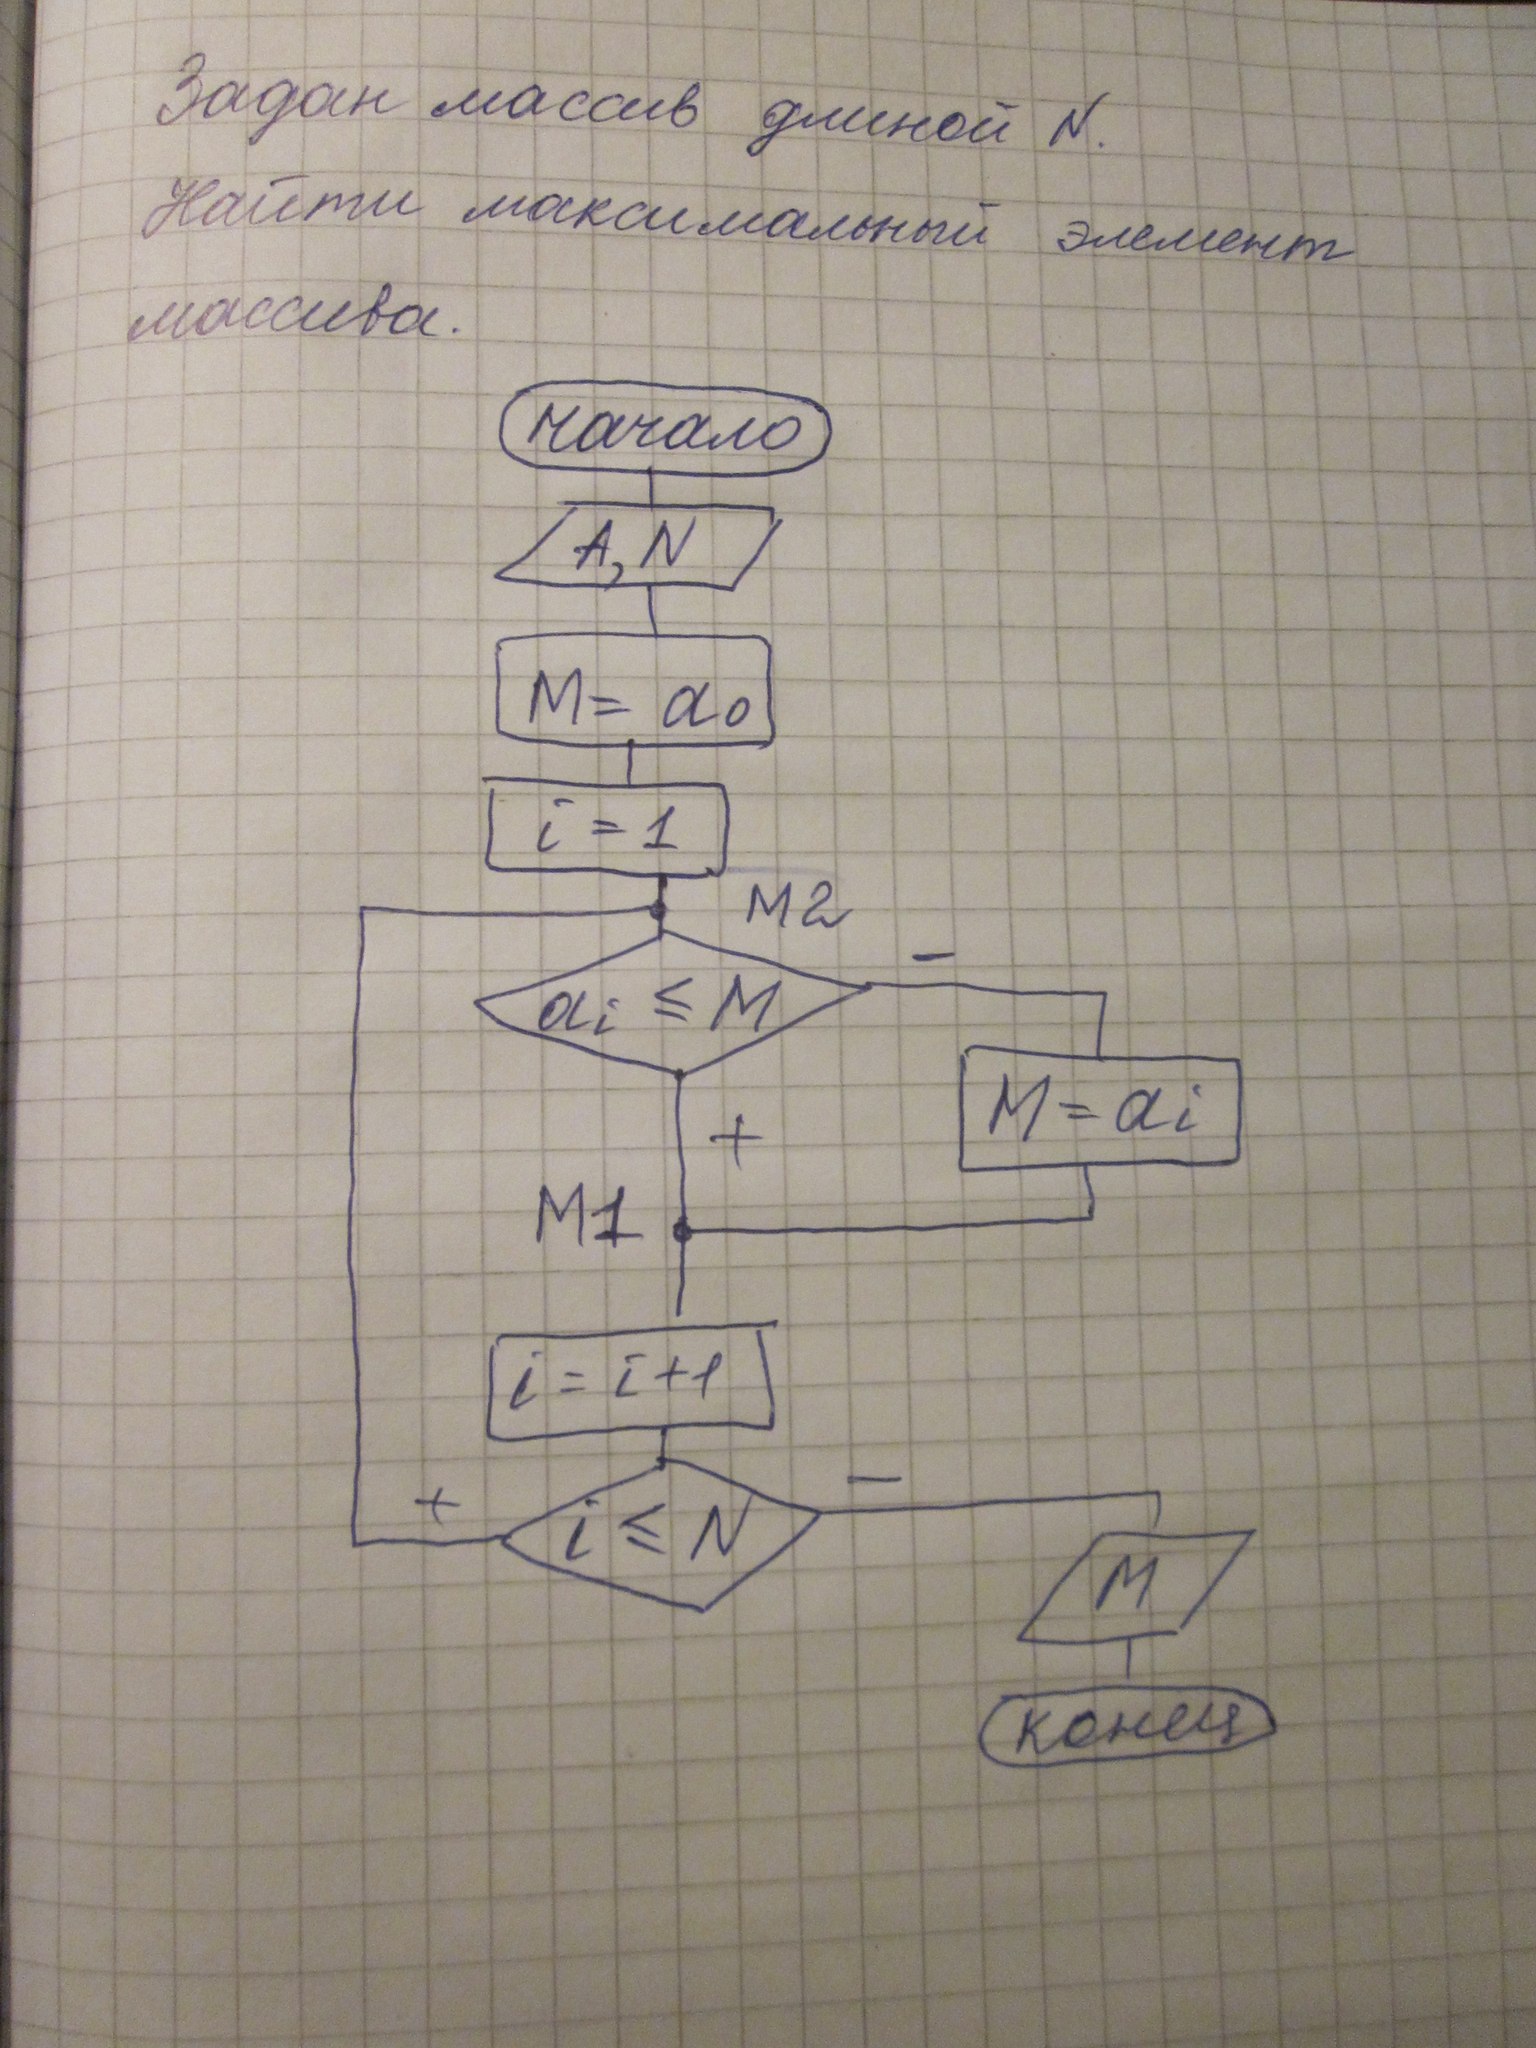 Задан массив длиной N.
Найти максимальный элемент
массива.
начало
A, N
M = a₀
i = 1
M2
aᵢ ≤ M
−
M = aᵢ
+
M1
i = i+1
+
i ≤ N
−
M
конец